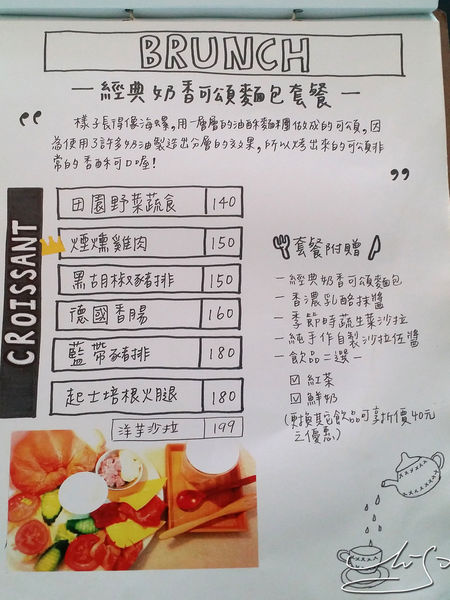 BRUNCH
一經典奶香可頌麵包套餐一
樣子長得像海螺,用一層層的油酥麵糰做成的可頌,因
為使用了許多奶油製造出分層的效果,所以烤出來的可頌非
常的香酥可口喔!
CROISSANT
田園野菜蔬食 140
煙燻雞肉 150
黑胡椒豬排 150
德國香腸 160
藍帶豬排 180
起士培根火腿 180
洋芋沙拉 199
套餐附贈
一經典奶香可頌麵包
一香濃乳酪抹醬
一季節時蔬生菜沙拉
一純手作自製沙拉佐醬
一飲品二選一
紅茶
鮮奶
(更換其它飲品可享折價40元
之優惠)